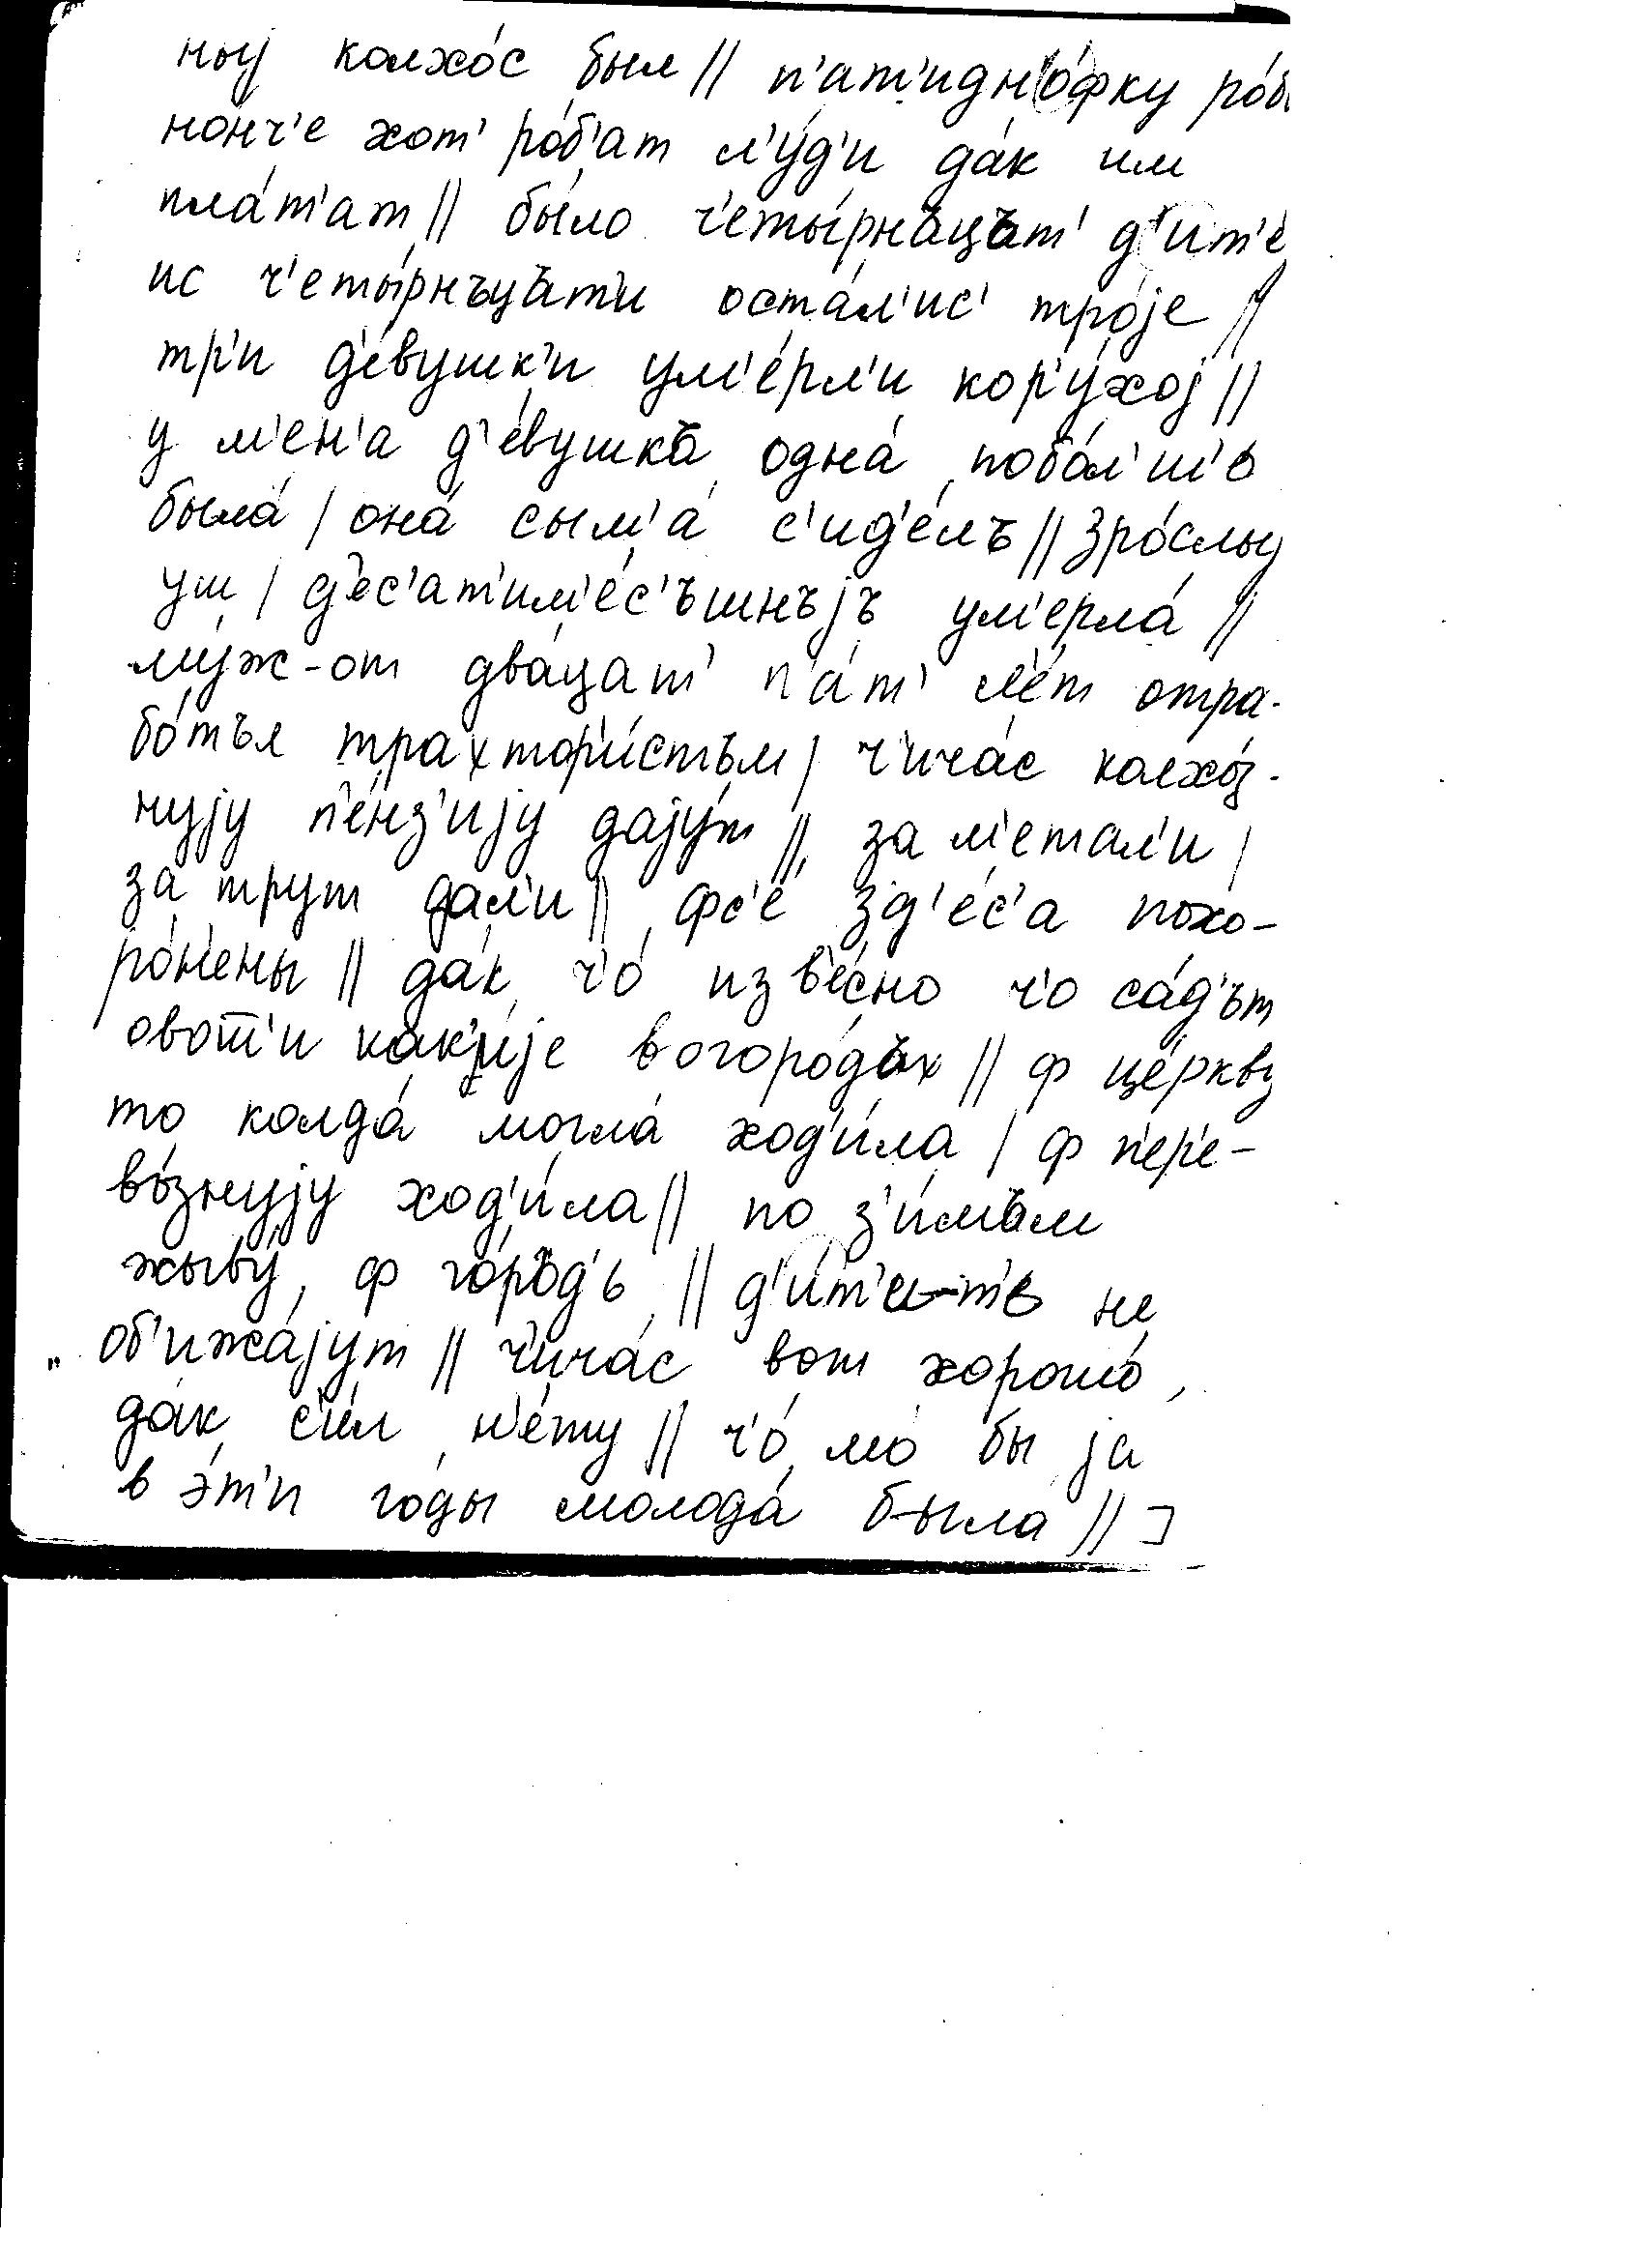 ныj колхо́с был // п'ат'идн'о́фку ро́б
нонч'е хот' ро́б'ат л'у́д'и да́к им
пла́т'ат // бы́ло ч'еты́рнъцът' д'ит'е́
ис ч'еты́рнъцът'и оста́л'ис' тро́jе //
тр'и д'е́вушк'и ум'е́рл'и кор'у́хоj //
у м'ен'а д'е́вушка одна́ побо́л'шъ
была́ / она́ сым'а́ с'ид'е́лъ // зро́слыj
уш / д'ес'ат'им'е́с'ъшнъjъ ум'ерла́ //
му́ж-от два́цат' п'а́т' л'е́т отра-
бо́тъл трахтор'и́стъм / ч'ича́с колхо́з-
нуjу п'е́нз'иjу даjу́т // за м'етал'и /
за трут дал'и // фс'е́ зд'е́с'а похо-
ро́н'ены // да́к ч'о́ изв'е́сно ч'о са́д'ът
овош'и как'и́jе в огоро́дъх // ф це́ркву
то колда́ могла́ ход'и́ла / ф п'ер'е-
во́знуjу ход'и́ла // по з'и́мъм
жыву́ ф го́ръд'ь // д'и́т'и-т'ь не
об'ижа́jут // ч'ича́с вот хорошо́,
да́к с'и́л н'е́ту // ч'о́ мо́ бы jа
в э́т'и го́ды молода́ была // ]